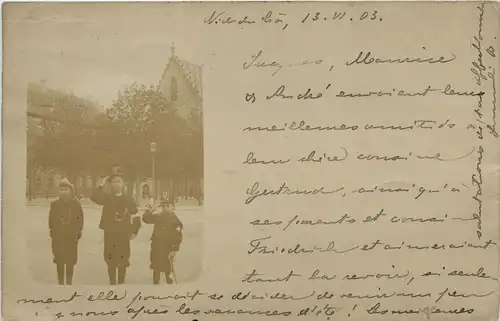 13. VI. 03.
Jacques, Maurice
& André envoient leurs
meilleures amitiés à
leur chère cousine
Gertrud, ainsi qu'à
ses parents et cousin
Friedrich et aimeraient
tant la revoir, si seule
ment elle pouvait se décider de venir un peu
nous après les vacances d'été! les mêmes
salutations